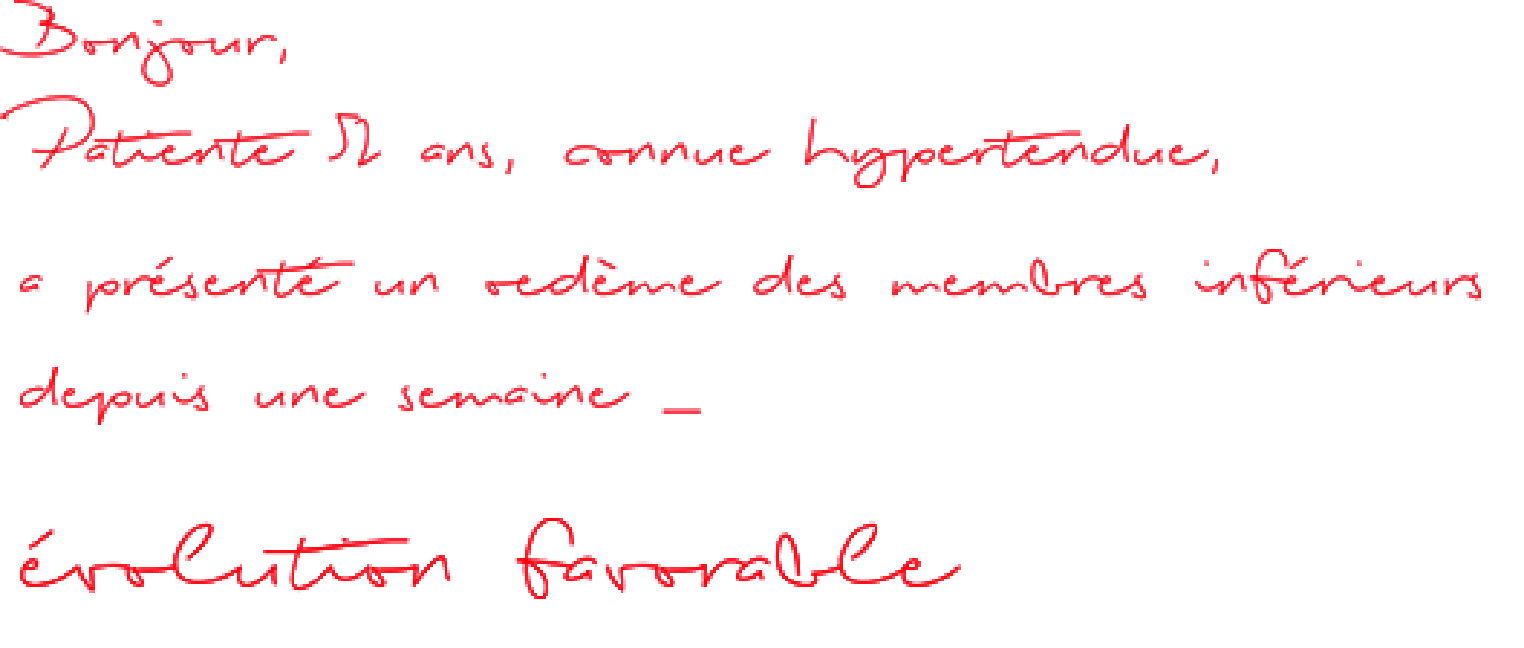 Bonjour,
Patiente 52 ans, connue hypertendue,
a présenté un oedème des membres inférieurs
depuis une semaine _
évolution favorable